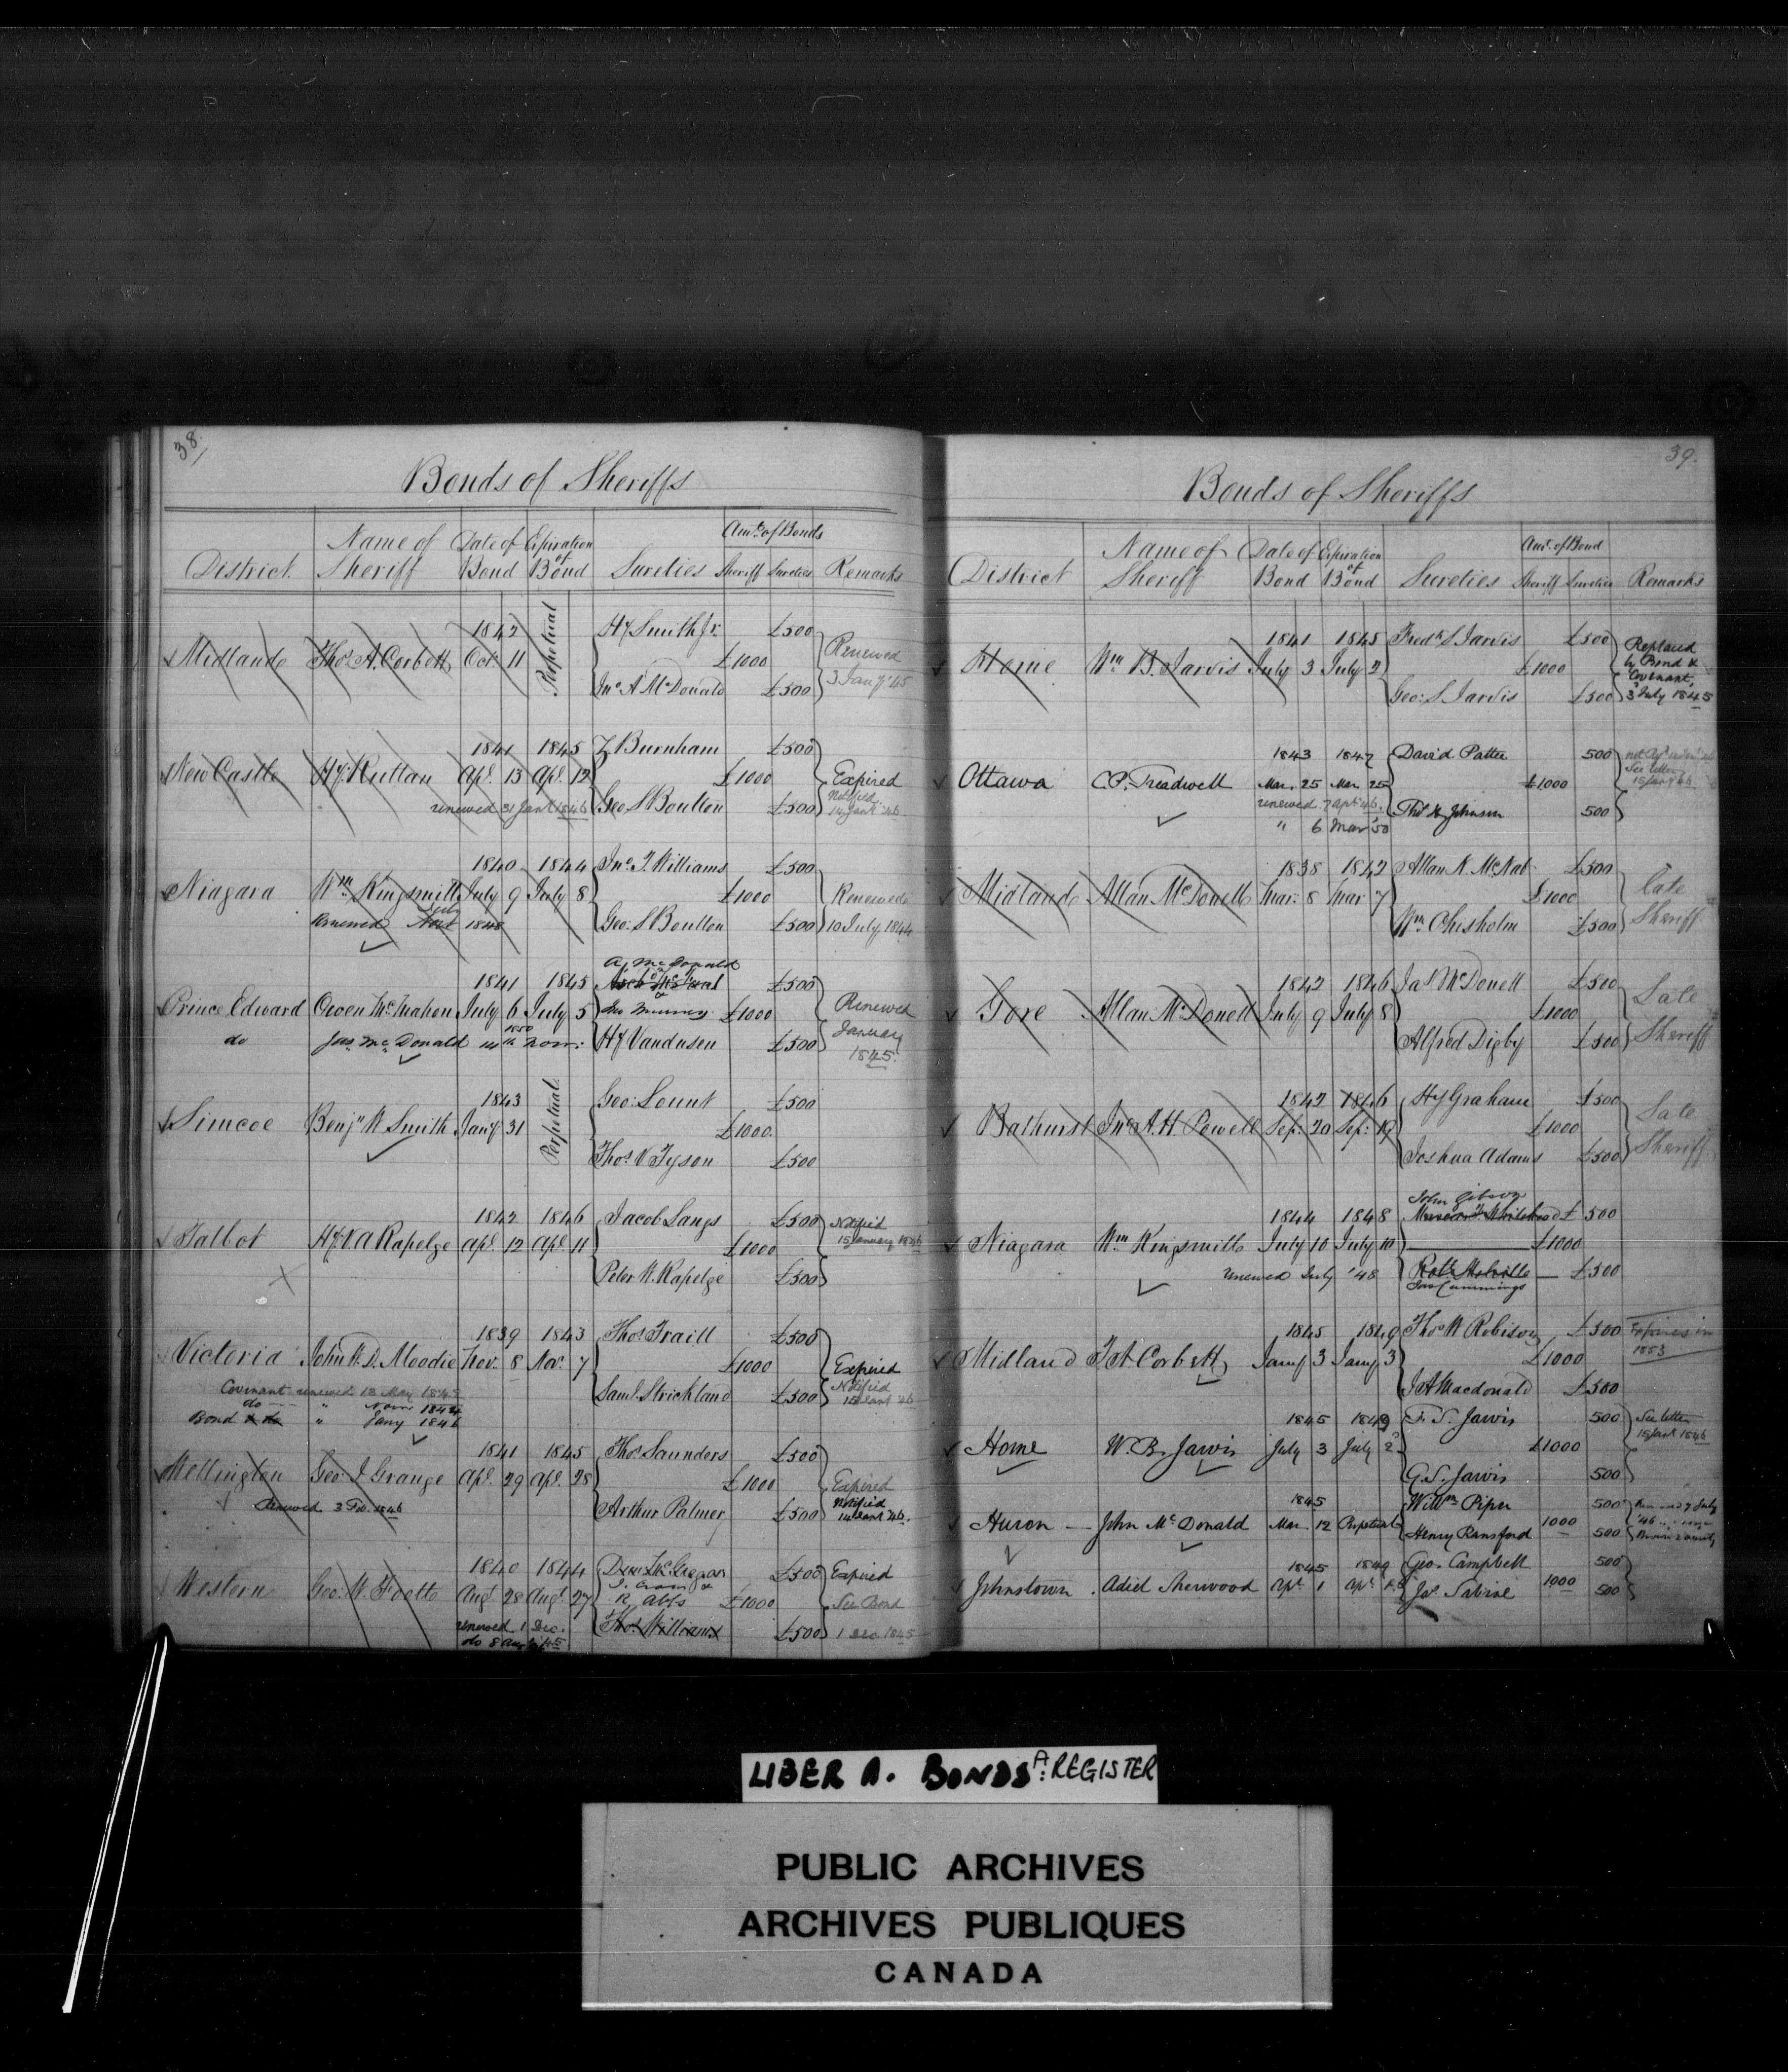 38
Bonds of Sheriffs
District Name of Sheriff Date of Bond Expiration of Bond Sureties Amt. of Bonds Sheriff Sureties Remarks
1842 Perpetual Hy Smith Jr. £500
Midland Thos. A. Corbett Oct. 11 £1000 Renewed
Jno. A McDonald £500 3 Jany. '45
1841 1845 Z. Burnham £500
New Castle Hy. Ruttan Apl. 13 Apl. 12 £1000 Expired
renewed 31 Jany 1846 Geo S Boulton £500 Notified 14 Jany '46
1840 1844 Jno. T. Williams £500
Niagara Wm. Kingsmill July 9 July 8 £1000 Renewed
Renewed July 1848 Geo. S Boulton £500 10 July 1844
A. McDonald
1841 1845 £500
Prince Edward Owen McMahon July 6 July 5 Jno Murney £1000 Renewed
do Jas. McDonald 14th Novr. 1850 Hy Vandusen £500 January 1845
1843 Perpetual Geo: Lount £500
Simcoe Benjn W Smith Jany 31 £1000
Thos. V Tyson £500
1842 1846 Jacob Langs £500 Notified
Talbot Hy V A Rapelge Apl. 12 Apl 11 £1000 15 January 1846
Peter W. Rapelge £500
1839 1843 Thos. Traill £500
Victoria John W. D. Moodie Nov. 8 Nov. 7 £1000 Expired
Saml. Strickland £500 Notified
Covenant renewed 18 May 1845
do " Novr. 1844
Bond & do " Jany 1846
1841 1845 Thos. Saunders £500
Wellington Geo. J Grange Apl. 29 Apl. 28 £1000 Expired
Renewed 3 Feb. 1846 Arthur Palmer £500 Notified 14 Jany '46.
1840 1844 £500 Expired
Western Geo. W. Foott Augt 28 Augt 27 R. Abbs £1000 See Bond
renewed 1 Dec. Thos. Williams £500 1 Dec 1845
do 8 Aug 45
39.
Bonds of Sheriffs
District Name of Sheriff Date of Bond Expiration of Bond Sureties Amt. of Bond Sheriff Sureties Remarks
1841 1845 Fredk. S Jarvis £500 Replaced
Home Wm B. Jarvis July 3 July 2 £1000 by Bond & Covenant,
Geo: S Jarvis £500 3 July 1845
1843 1847 David Pattee 500
Ottawa C.P. Treadwell Mar. 25 Mar. 25 £1000 See letter 15 Jany 46
renewed 7 Apl '46. Thos H Johnson 500
" 6 Mar '50
1838 1842 Allan N. McNab £500
Midland Allan McDonell Mar: 8 Mar 7 £1000 Late
Wm. Chisholm £500 Sheriff
1842 1846 Jas McDonell £500
Gore Allan McDonell July 9 July 8 £1000 Late
Alfred Digby £500 Sheriff
1842 1846 Hy Graham £500
Bathurst Jno A. H. Powell Sep. 20 Sep. 19 £1000 Late
Joshua Adams £500 Sheriff
John Gibson
1844 1848 £500
Niagara Wm. Kingsmill July 10 July 10 £1000
renewed July '48 Robt Melville £500
Cummings
1845 1849 Thos W Robison £500 Expires in
Midland T A Corbett Jany 3 Jany 3 £1000 1853
J A Macdonald £500
1845 1849 F. S. Jarvis 500 See letter
Home W. B. Jarvis July 3 July 2 £1000 15 Jany 1846
G. S. Jarvis 500
1845 Willm Piper 500
Huron John McDonald Mar. 12 Perpetual 1000
Henry Ransford 500
1845 1849 Geo. Campbell 500
Johnstown Adiel Sherwood Apl. 1 Apl. 1000
Jas. Sabine 500
LIBER A. BONDS A: REGISTER
PUBLIC ARCHIVES
ARCHIVES PUBLIQUES
CANADA